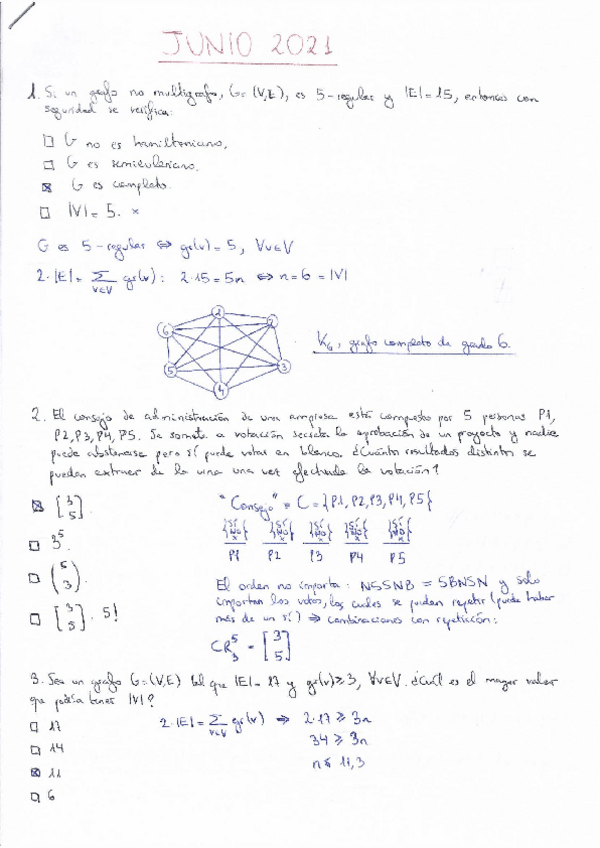 JUNIO 2021
1. Si un grafo no multigrafo, G=(V,E), es 5-regular y |E|=15, entonces con
seguridad se verifica:
G no es hamiltoniano.
G es semieuleriano.
☒ G es completo.
|V|=5. ×
G es 5-regular ⇔ gr(v)=5, ∀v∈V
2·|E| = Σ gr(v): 2·15=5n ⇔ n=6=|V|
v∈V
1
2
6
5
3
4
K₆, grafo completo de grado 6.
2. El consejo de administración de una empresa está compuesto por 5 personas P1,
P2, P3, P4, P5. Se somete a votación secreta la aprobación de un proyecto y nadie
puede abstenerse pero sí puede votar en blanco. ¿Cuántos resultados distintos se
pueden extraer de la urna una vez efectuada la votación?
☒ [3 5].
3⁵.
(5 3).
[3 5]·5!
"Consejo" = C = {P1, P2, P3, P4, P5}
P1 P2 P3 P4 P5
El orden no importa: NSSNB = SBNSN y solo
importan los votos, los cuales se pueden repetir (puede haber
más de un sí) ⇒ combinaciones con repetición:
CR₃⁵ = [3 5]
3. Sea un grafo G=(V,E) tal que |E|=17 y gr(v)≥3, ∀v∈V. ¿Cuál es el mayor valor
que podría tener |V|?
17
14
☒ 11
6
2·|E| = Σ gr(v) ⇒ 2·17 ≥ 3n
v∈V
34 ≥ 3n
n ≤ 11,3